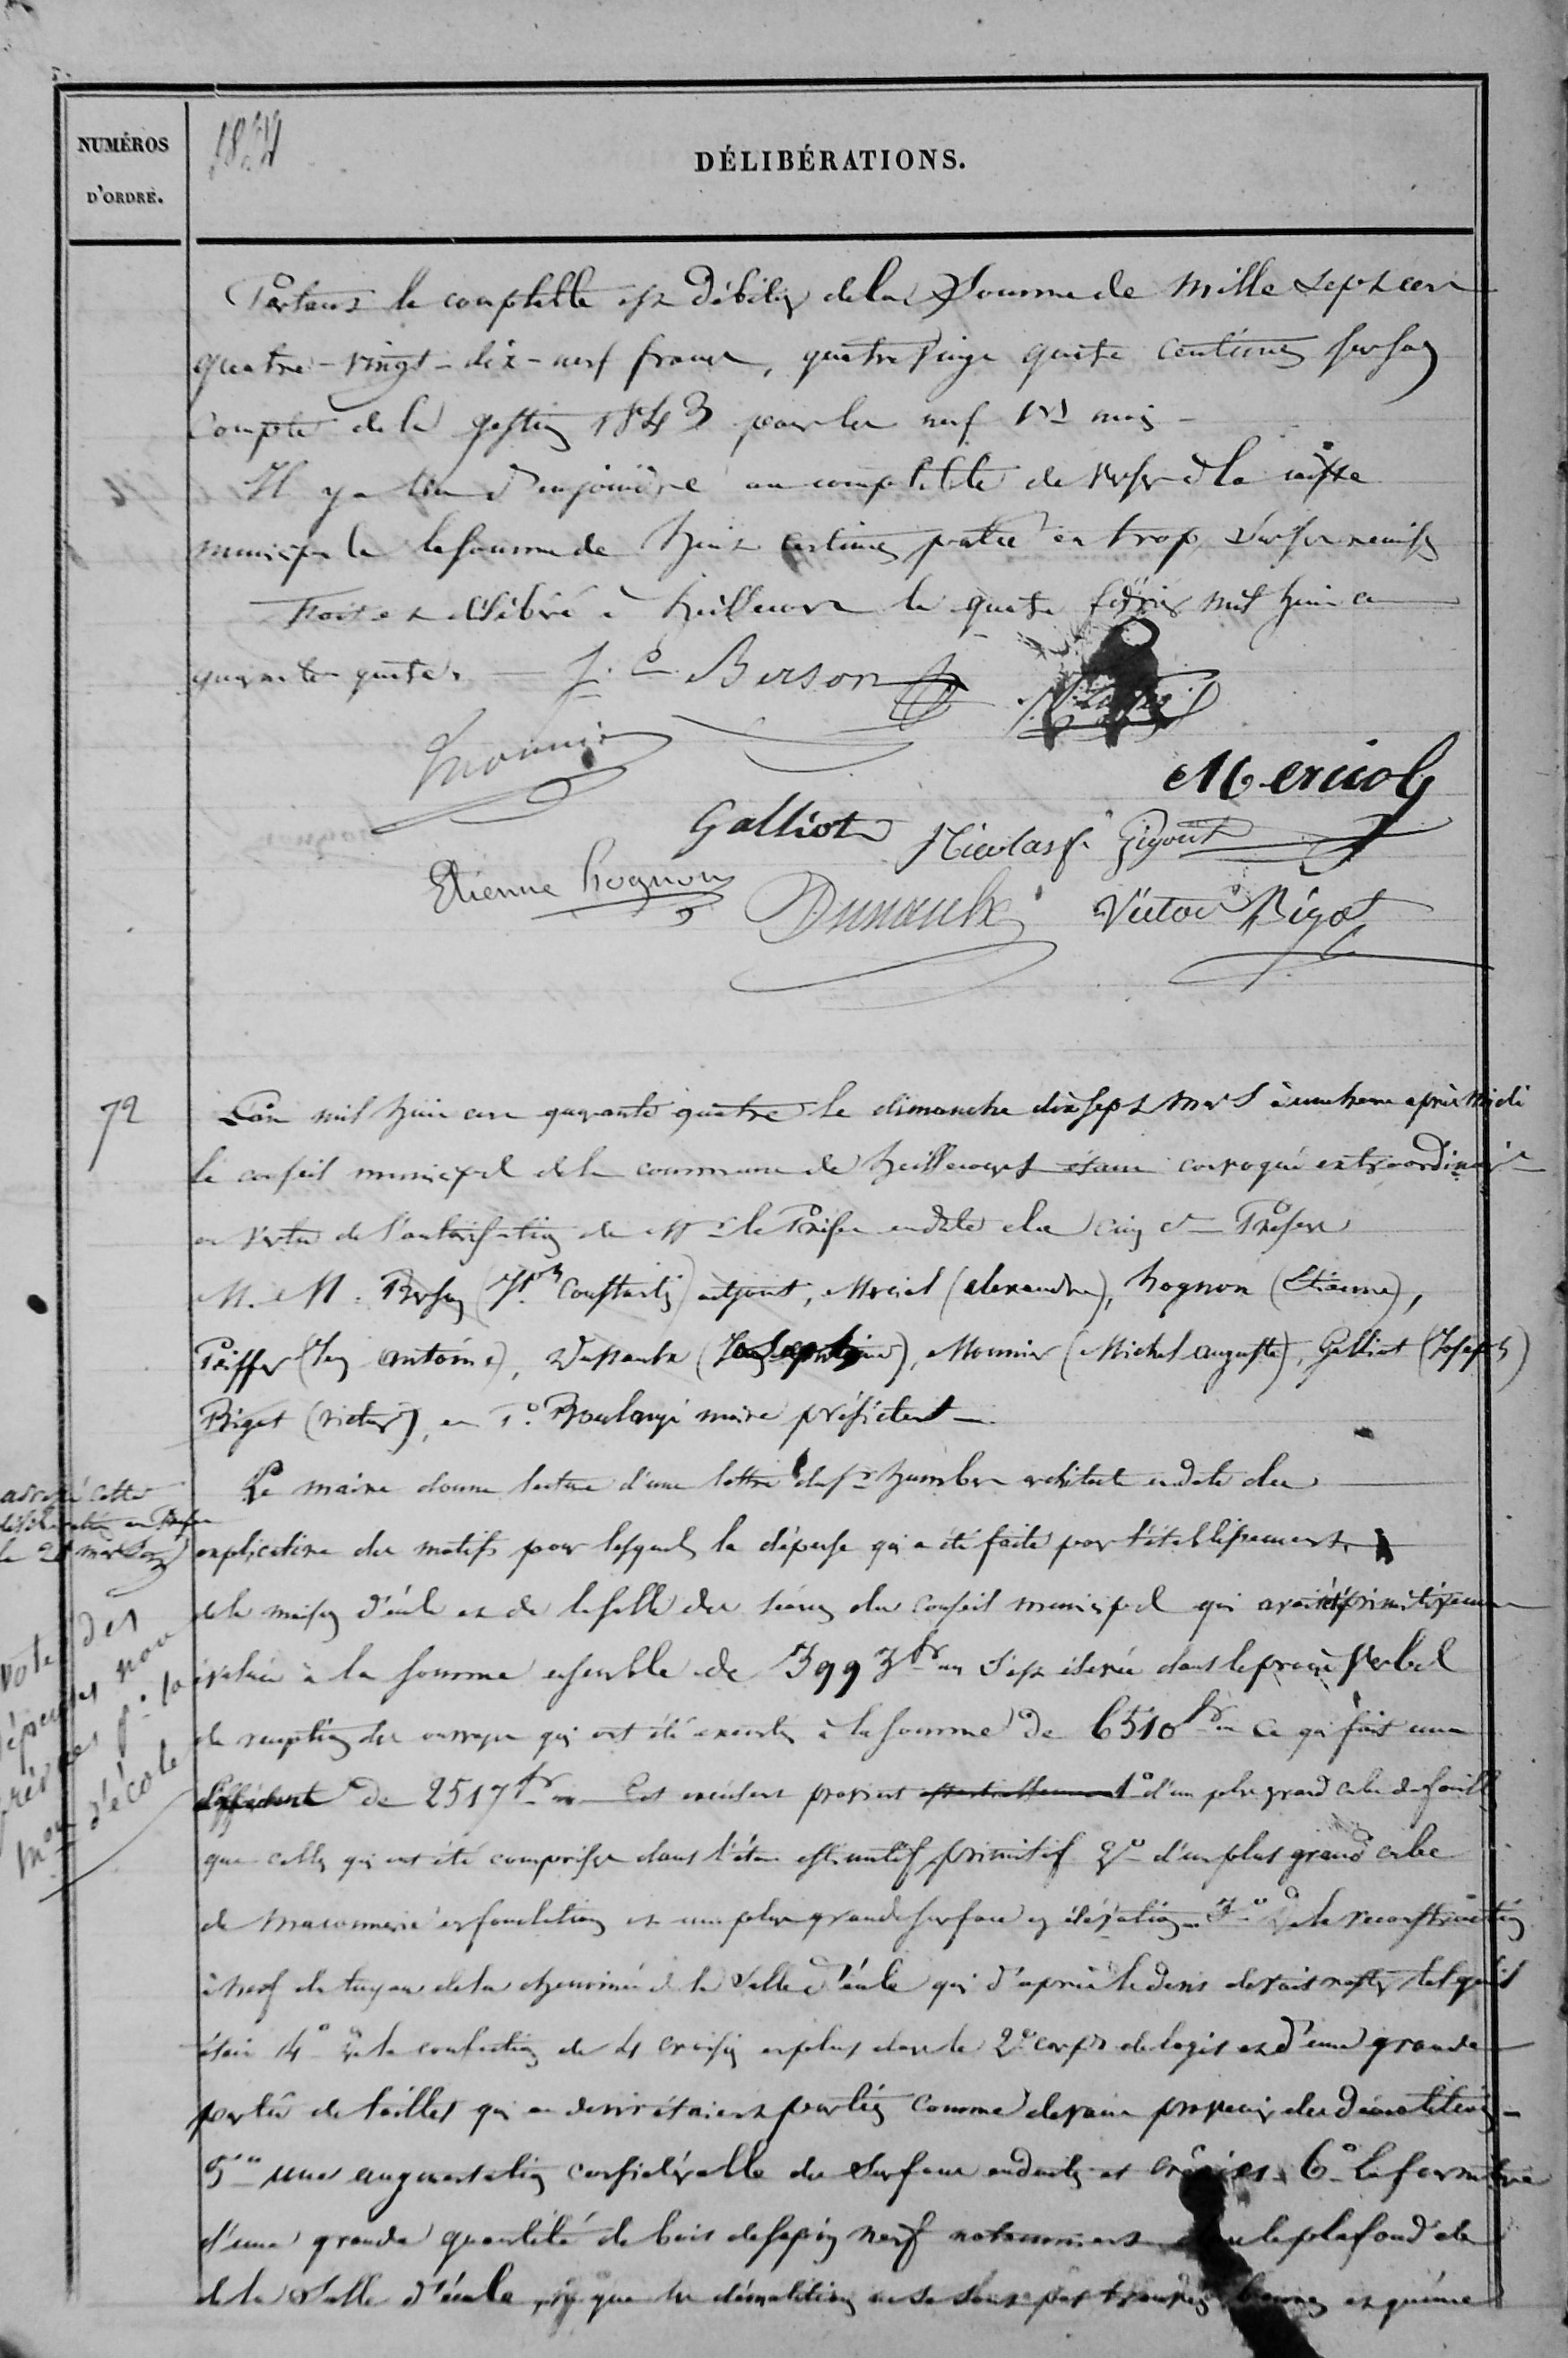 NUMÉROS
D'ORDRE.
DÉLIBÉRATIONS.
Partant le comptable est débiteur de la Somme de Mille Sept cent
quatre-vingt-dix-neuf francs, quatre vingt quatre centimes sur son
Compte de la gestion 1843 pour les neuf 1ers mois
Il y a lieu d'enjoindre au comptable de verser à la caisse
municipale la somme de huit centimes portée en trop sur ses remises
Fait et délibéré à heillecourt le quatre février mil huit cent
quarante quatre. J. C. Berson
Mounier
Merciol
Galliot Nicolas f. Gigout
Etienne hognon
Victor Bigot
72
L'an mil huit cent quarante quatre le dimanche dix sept Mars à une heure après Midi
le conseil municipal de la commune de heillecourt étant convoqué extraordinairt
en vertu de l'autorisation de Mr le Préfet en date du cinq ct Présens
M. M. Berson (Jh Constantin) adjoint, Merciol (alexandre), hognon (Etienne),
Piffer (Jean antoine), (Joseph), Mounier (Michel auguste), Galliot (Joseph)
Bigot (victor), et Boulangé maire président
Le maire donne lecture d'une lettre du Sr humbert architecte en date du
explicative des motifs pour lesquels la dépense qui a été faite pour l'établissement
de la maison d'école et de la salle des séances du Conseil municipal qui avait primitivement
évaluée à la somme ensemble de 3993 fr s'est élevée dans le procès verbal
de réception des ouvrages qui ont été exécutés à la somme de 6510 fr ce qui fait une
de 2517 fr Cet excédent provient 1o d'un plus grand cube de fouilles
que celles qui ont été comprises dans l'état estimatif primitif 2o d'un plus grand cube
de maconnerie en fondation et une plus grande surface en élévation 3o de la reconstruction
à neuf du tuyau de la cheminée de la Salle d'école qui d'après le devis devait rester tel qu'il
était 4o de la confection de 4 croisées en plus dans le 2e corps de logis et d'une grande
partie de tailles qui au devis étaient portées comme devant provenir des démolitions
5o une augmentation considérable de Surface enduits et crépis 6o la fourniture
d'une grande quantité de bois de sapin neuf notamment le plafond de
de la Salle d'école, que les démolitions ne se sont pas trouvées bonnes et qu'une
cette
délibération
le 21 mars
Vote des
dépenses non
prévues pr la
mon d'école